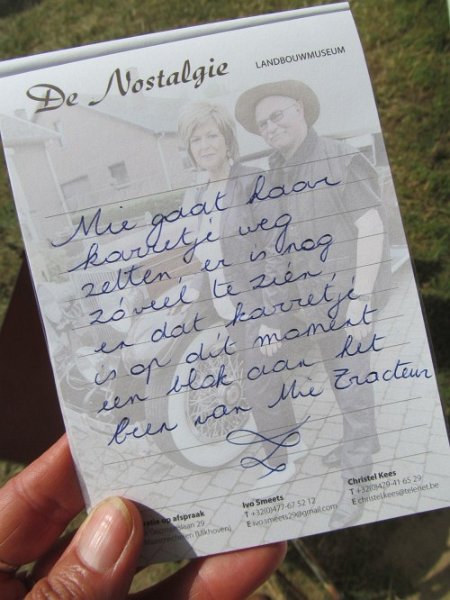 De Nostalgie LANDBOUWMUSEUM
Mie gaat haar
karretje weg
zetten, er is nog
zóveel te zien,
en dat karretje
is op dit moment
een blok aan het
been van Mie Tracteur
op afspraak
29
Ivo Smeets
T +32(0)477-67 52 12
E ivo.smeets29@gmail.com
Christel Kees
T +32(0)479-41 65 29
E christel.kees@telenet.be